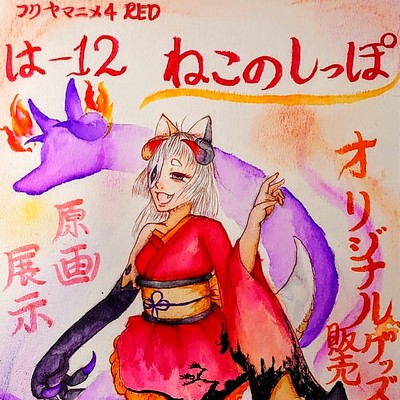 フクヤマニメ4 RED
は-12 ねこのしっぽ
オリジナルグッズ
販売
原画
展示